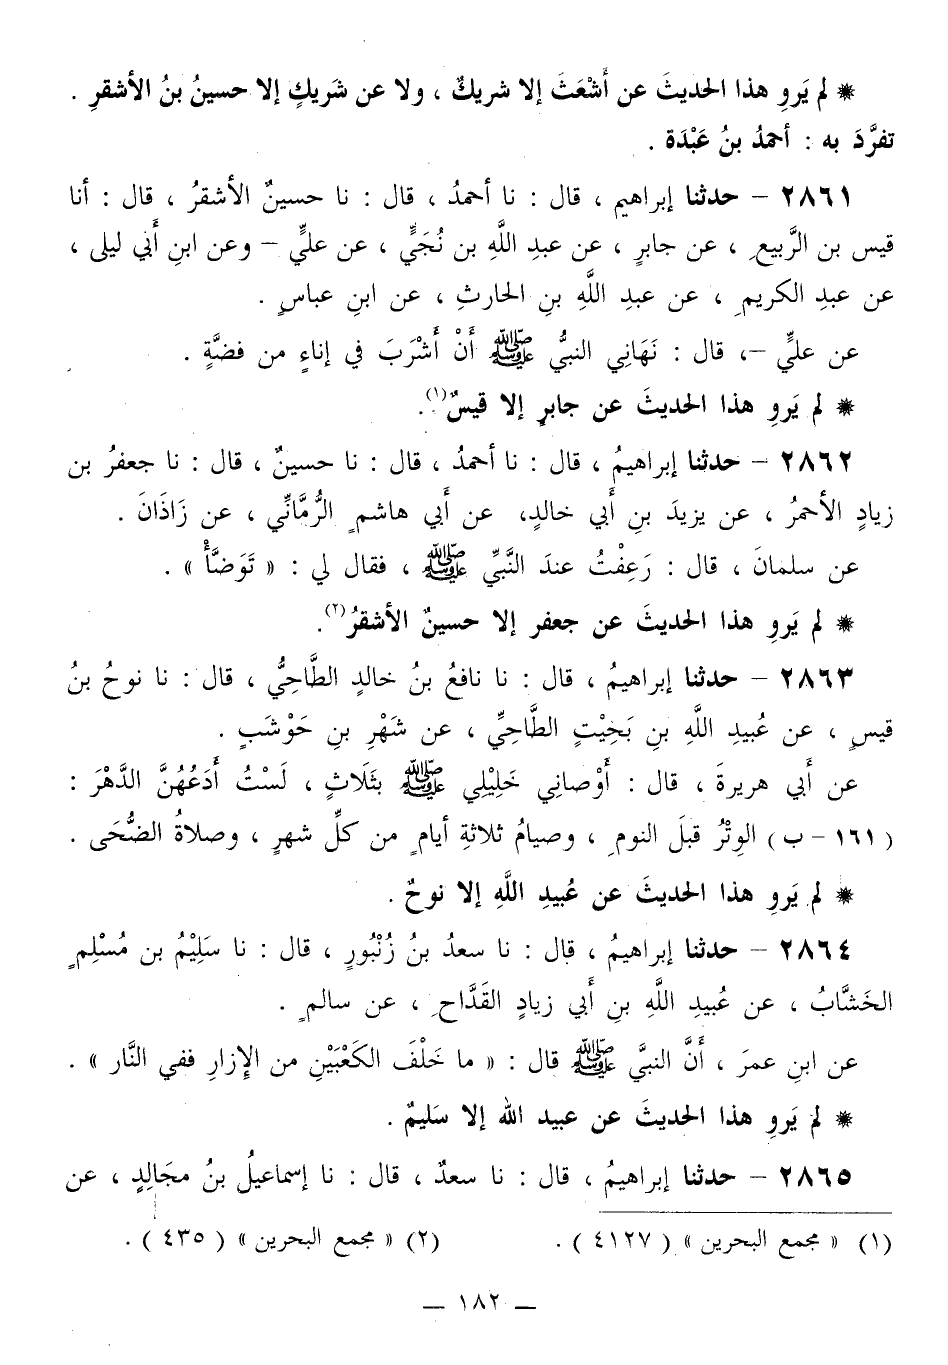 * لم يَروِ هذا الحديثَ عن أَشْعَثَ إلا شريكٌ ، ولا عن شَريكٍ إلا حسينُ بنُ الأشقرِ .
تفرَّدَ به : أحمدُ بنُ عَبْدَة .
٢٨٦١ – حدثنا إبراهيم ، قال : نا أحمدُ ، قال : نا حسينٌ الأشقرُ ، قال : أنا
قيس بن الرَّبيعِ ، عن جابرٍ ، عن عبدِ اللَّهِ بن نُجَيٍّ ، عن عليٍّ – وعن ابنِ أبي ليلى ،
عن عبدِ الكريمِ ، عن عبدِ اللَّهِ بنِ الحارثِ ، عن ابنِ عباسٍ .
عن عليٍّ –، قال : نَهَانِي النبيُّ ﷺ أَنْ أَشْرَبَ في إناءٍ من فضَّةٍ .
* لم يَروِ هذا الحديثَ عن جابرٍ إلا قيسٌ(١).
٢٨٦٢ – حدثنا إبراهيمُ ، قال : نا أحمدُ ، قال : نا حسينٌ ، قال : نا جعفرُ بن
زيادٍ الأحمرُ ، عن يزيدَ بنِ أبي خالدٍ، عن أبي هاشمٍ الرُّمَّانِّي ، عن زَاذَانَ .
عن سلمانَ ، قال : رَعِفْتُ عندَ النَّبيِّ ﷺ ، فقال لي : « تَوَضَّأْ » .
* لم يَروِ هذا الحديثَ عن جعفر إلا حسينٌ الأشقرُ(٢).
٢٨٦٣ – حدثنا إبراهيمُ ، قال : نا نافعُ بنُ خالدٍ الطَّاحِيُّ ، قال : نا نوحُ بنُ
قيسٍ ، عن عُبيدِ اللَّهِ بنِ بَخِيْتٍ الطَّاحِيِّ ، عن شَهْرِ بنِ حَوْشَبٍ .
عن أبي هريرةَ ، قال : أَوْصانِي خَلِيْلِي ﷺ بثَلَاثٍ ، لَسْتُ أَدَعُهُنَّ الدَّهْرَ :
( ١٦١ – ب ) الوِتْرُ قبلَ النومِ ، وصيامُ ثلاثةِ أيامٍ من كلِّ شهرٍ ، وصلاةُ الضُّحَى .
* لم يَروِ هذا الحديثَ عن عُبيدِ اللَّهِ إلا نوحٌ .
٢٨٦٤ – حدثنا إبراهيمُ ، قال : نا سعدُ بنُ زُنْبُورٍ ، قال : نا سَلِيْمُ بن مُسْلِمٍ
الخَشَّابُ ، عن عُبيدِ اللَّهِ بنِ أبي زيادٍ القَدَّاحِ ، عن سالمٍ .
عن ابنِ عمرَ ، أَنَّ النبيَّ ﷺ قال : « ما خَلْفَ الكَعْبَيْنِ من الإِزارِ ففي النَّار » .
* لم يَروِ هذا الحديثَ عن عبيد الله إلا سَليمٌ .
٢٨٦٥ – حدثنا إبراهيمُ ، قال : نا سعدٌ ، قال : نا إسماعيلُ بنُ مجَالِدٍ ، عن
(١) « مجمع البحرين » ( ٤١٢٧ ) . (٢) « مجمع البحرين » ( ٤٣٥ ) .
– ١٨٢ –